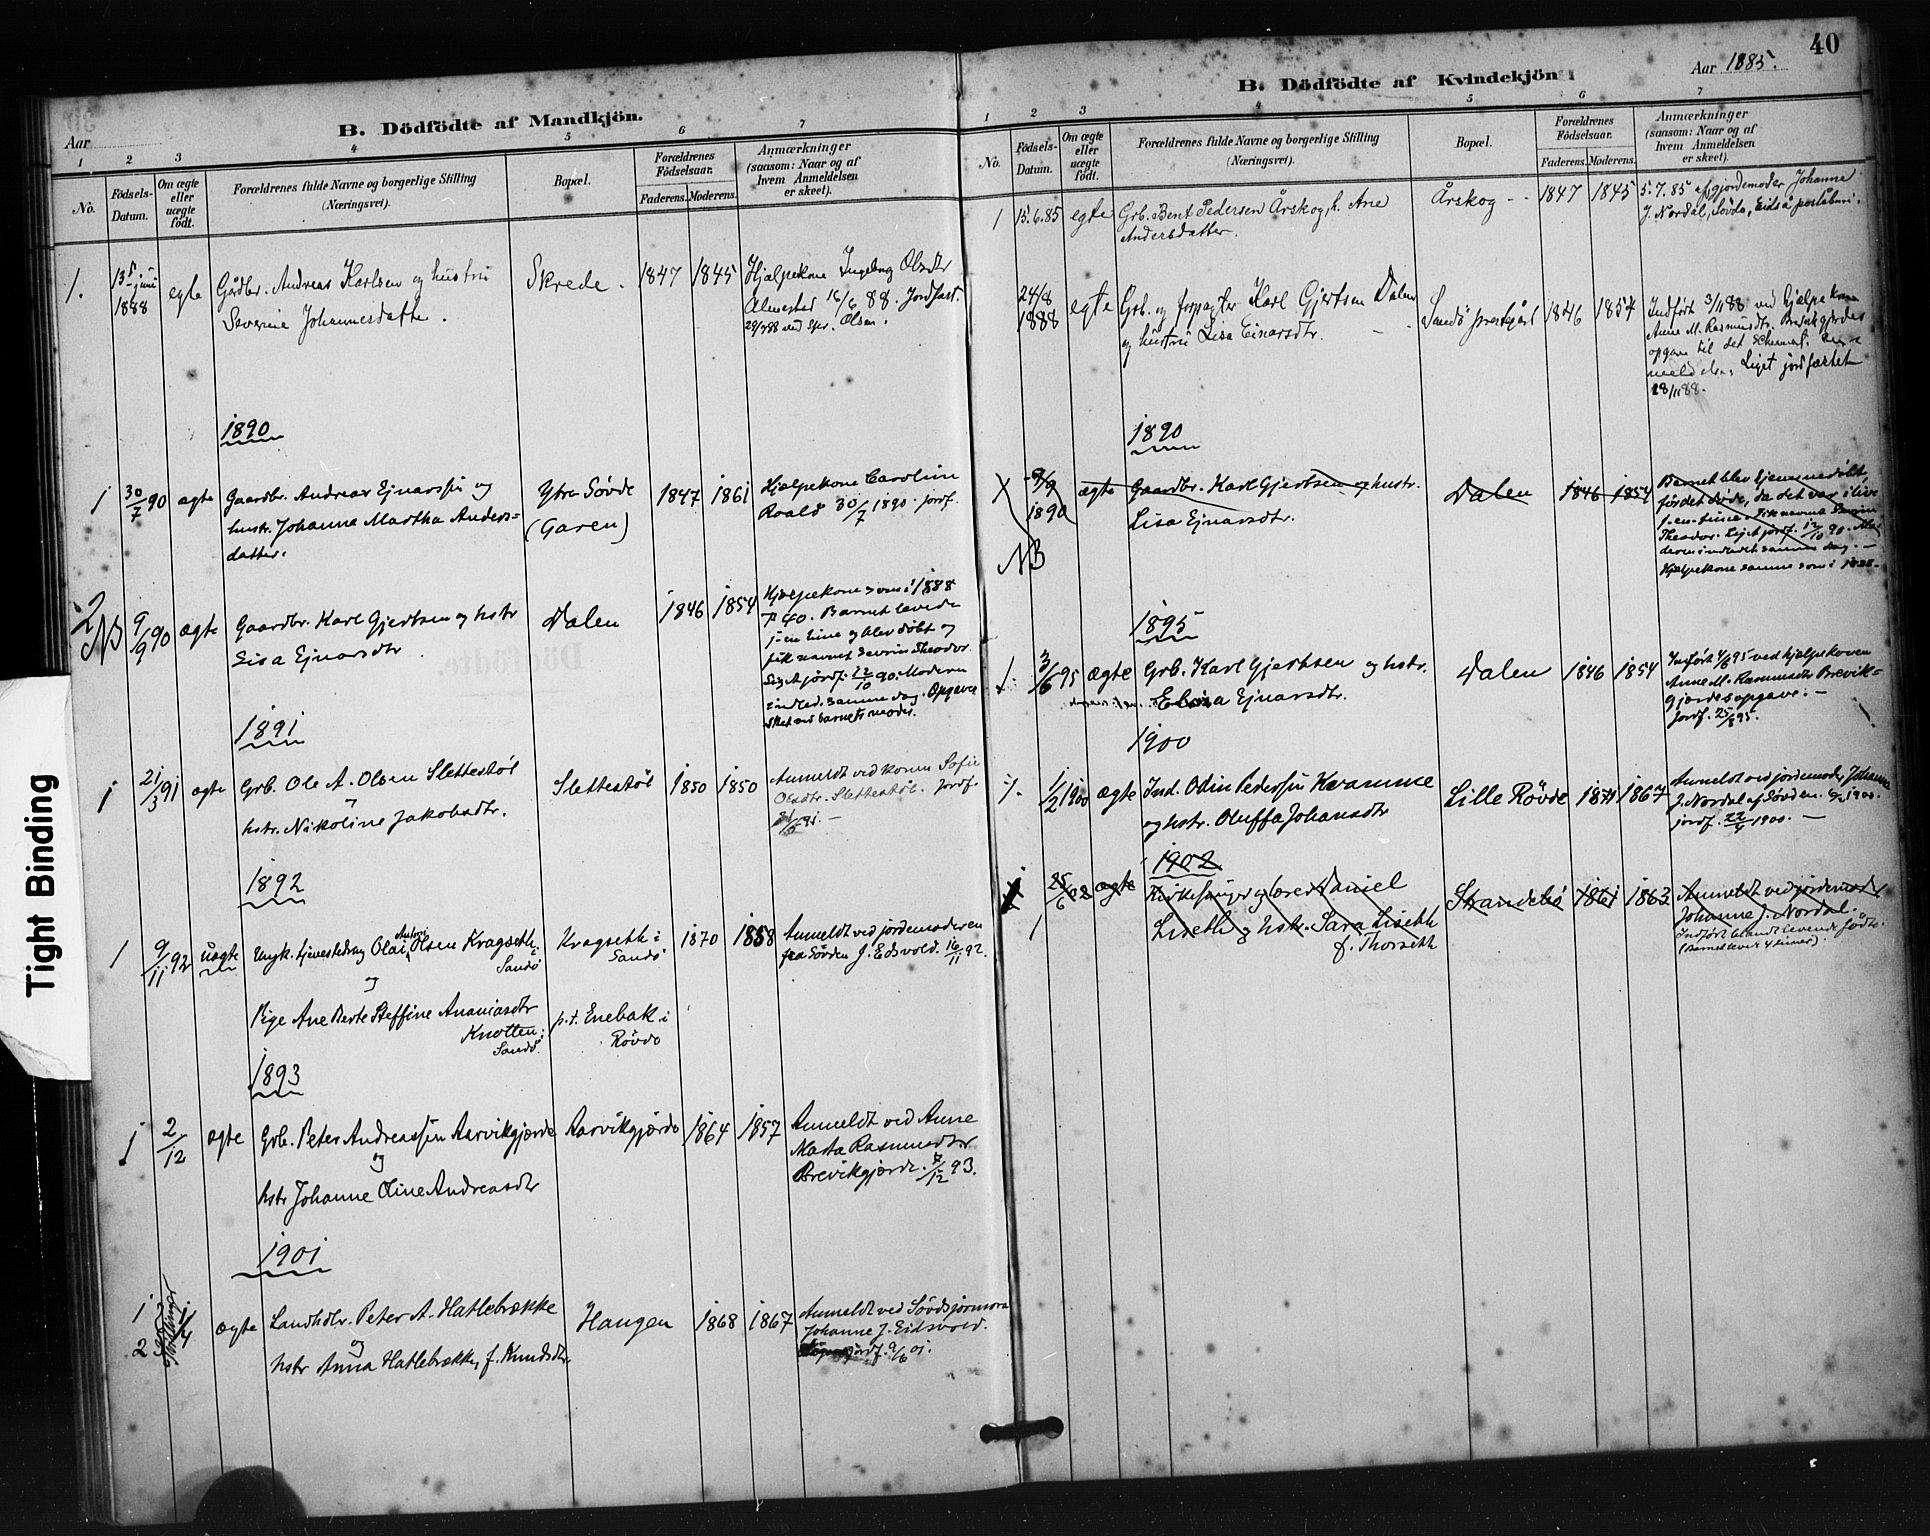 40
B. Dödfödte af Mandkjön.
Aar
1 2 3 4 5 6 7
No.
Födsels-
Datum.
Om ægte
eller
uægte
födt.
Forældrenes fulde Navne og borgerlige Stilling
(Næringsvei).
Bopæl.
Forældrenes
Födselsaar.
Faderens. Moderens.
Anmærkninger
(saasom: Naar og af
hvem Anmeldelsen
er skeet).
1. 13 juni 1888 egte Gårdbr. Andreas Karlsen og hustru
Severine Johannesdatter.
Skrede. 1847 1845
Hjælpekone Ingeborg Olsdtr
Almestad 16/6 88. Jordfæst.
29/7 88 ved Olsen.
1890
1 30/7 90 ægte Gaardbr. Andreas Ejnarssen og
hustr. Johanne Martha Anders=
datter.
Ytre Søvde
(Garen)
1847 1861
Hjælpekone Caroline
Roald 30/7 1890. jordf.
2 NB 9/9 90 ægte Gaardbr. Karl Gjertsen og hstr
Lisa Ejnarsdtr
Dalen 1846 1854
Hjælpekone som i 1888
p. 40. Barnet levede
1-en time og blev døbt og
fik navnet Severin Theodor.
Liget jordf. 12/10 90. Moderen
indled. samme dag. Opgave
sket ved barnets moder.
1891
1 21/3 91 ægte Grb. Ole A. Olsen Slettestøl
og
hstr. Nikoline Jakobsdtr.
Slettestøl 1850 1850
Anmeldt ved konen Sofie
Olsdtr. Slettestøl. jordf.
1892
1 9/11 92 uægte Ungk. Olai Olsen Kragseth
Sandö
og
Pige Ane Berte Steffine Ananiasdtr
Knotten
Sandö.
Kragseth i
Sandö
p.t. Enebak i
Røvde
1870 1858
Anmeldt ved jordemoderen
fra Søvden J. Eidsvold. 16/11 92.
1893
1 2/12 ægte Grb. Peter Andreassen Aarvikgjerde
og
hstr Johanne Oline Andreasdtr
Aarvikgjerde 1864 1857
Anmeldt ved Anne
Marta Rasmusdtr
Brevikgjerde. 7/12 93.
1901
1
2 1/4 ægte Landhdlr. Peter A. Hatlebrække
og
hstr Anna Hatlebrække, f. Knudsdtr.
Haugen 1868 1867
Anmeldt ved Søvdsjormora
Johanne J. Eidsvold.
jordf. 9/6 01.
B. Dödfödte af Kvindekjön.
Aar 1885.
1 2 3 4 5 6 7
No.
Födsels-
Datum.
Om ægte
eller
uægte
födt.
Forældrenes fulde Navne og borgerlige Stilling
(Næringsvei).
Bopæl.
Forældrenes
Födselsaar.
Faderens. Moderens.
Anmærkninger
(saasom: Naar og af
hvem Anmeldelsen
er skeet).
1 15.6.85 egte Grb. Bent Pedersen Årskog, h. Ane
Andersdatter.
Årskog 1847 1845
5.7.85 af gjordemoder Johanne
J. Nordal, Søvde, Eidså poståbneri.
24/8 1888 egte Grb. og forpagter Karl Gjertsen Dalen
og hustru Lisa Einarsdtr.
Sandö prestgård 1846 1854
Indført 3/11 88 ved Hjælpekone
Anne M. Rasmusdtr. Brevikgjerdes
opgave til det
meldelse. Liget jordfæstet
18/11 88.
1890
1 9/9 1890 ægte Gaardbr. Karl Gjertsen og hustr.
Lisa Ejnarsdtr.
NB
Dalen 1846 1854
Barnet blev hjemmedøbt,
før det døde, da det var ilive
1-en time. Fik navnet Severin
Theodor. Liget jordf. 12/10 90. Mo-
deren indledt samme dag. —
Hjælpekone samme som i 1888.
1895
1. 3/6 95 ægte Grb. Karl Gjertsen og hstr.
Elisa Ejnarsdtr.
Dalen 1846 1854
Indført 4/6 95 ved hjælpekonen
Anne M. Rasmusdtr Brevik-
gjerdes opgave. —
Jordf. 25/8 95.
1900
1. 1/2 1900 ægte Ind. Odin Pederssen Kvamme
og hstr. Oluffa Johansdtr
Lille Røvde 1871 1867
Anmeldt ved jordemoder Johanne
J. Nordal af Søvden. 1900.
jordf. 22/4 1900. —
1902
1 25/6 02 ægte Kirkesanger og lærer Daniel
Liseth og hstr. Sara Liseth
f. Thorseth
Strandebö 1861 1863
Anmeldt ved jordemoder
Johanne J. Nordal.
Indført blandt levende fødte.
(Barnet levet 4 timer).
Tight Binding